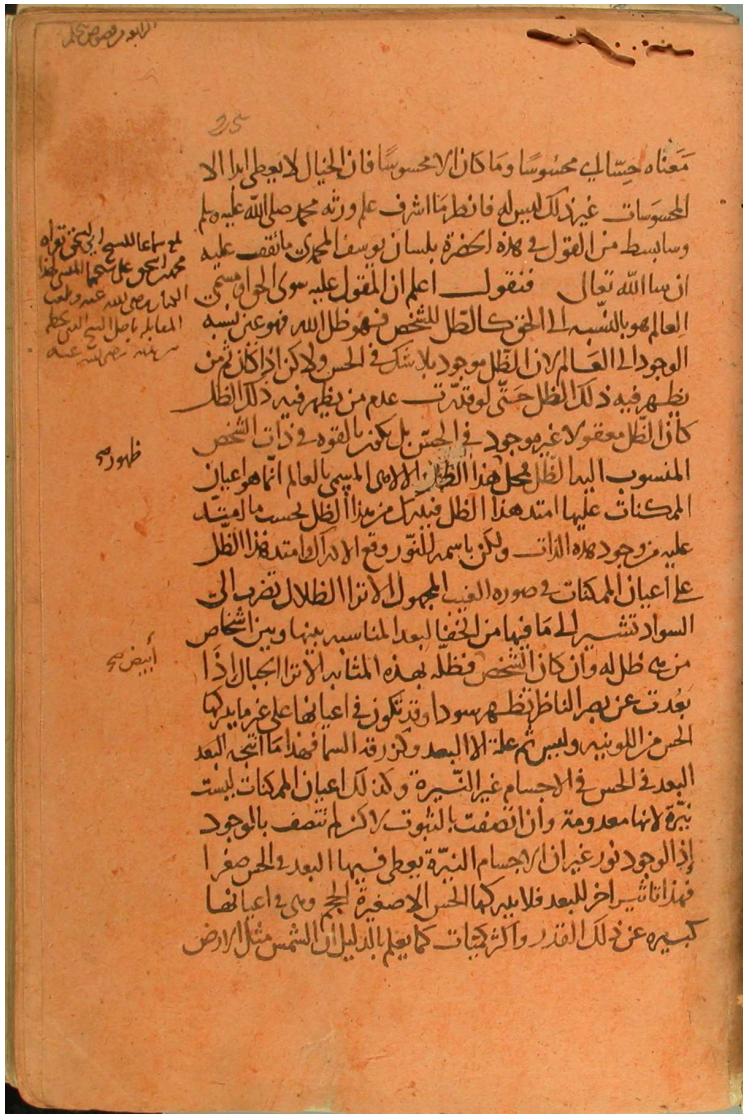 الرابعة من فصوص الحكم
25
مَعنَاه حِسّا اي محسُوسًا وَمَا كان الا محسوسًا فان الخيال لا يعطى ابدا الا
المحسوَسات غير ذلك ليس له فانظر مَا اشرف علم ورثه محمد صلى الله عليه وسلم
وسابسط من القول فى هذه الحضرة بلسان يوسف المحمدى ما تقف عليه
ان شا الله تعالى فنقول اعلم ان المقول عليه سوى الحق او مسمى
العالم هو بالنّسبه الى الحق كالظل للشخص فهو ظل الله فهو عين نسبه
الوجود الى العَالم لان الظل موجود بلا شك فى الحس ولاكن اذا كان ثم من
يظهر فيه ذلك الظل حَتّى لو قدّرت عدم من يظهر فيه ذلك الظل
كان الظّل معقولا غير موجود فى الحسّ بل يكون بالقوه فى ذات الشخص
المنسوب اليه الظل فمحل هذا الظل الالاهى المسمى بالعالم انّما هو اعيان
الممكنات عليها امتد هذا الظل فتدرك من هذا الظل بحسب ما امتد
عليه من وجود هذه الذات ولكن باسمه النّور وقع الادراك وامتد هذا الظّل
على اعيان الممكنات فى صوره الغيب المجهول الا ترا الظلال تضرب الى
السواد تشير الى مَا فيها من الخفا لبعد المناسبه بينها وبين اشخاص
من هى ظل له وان كان الشخص فظلّه بهذه المثابه الا ترا الجبال اذَا
بَعُدت عن بصر الناظر تظهر سودا وقد تكون فى اعيانها على غير ما يدركها
الحس من اللونيه وليس ثم علة الا البعد وكزرقه السما فهذا مَا انتجه البعد
البعد فى الحس فى الاجسام غير النَّيرة وكذلك اعيان الممكنات ليست
نيّرة لانها معدومة وان اتصفت بالثبوت لاكن لم تتصف بالوجود
إذ الوجود نور غير ان الاجسام النيرّة يعطى فيها البعد فى الحس صغرا
فهذا تاثير اخر للبعد فلا يدركها الحس الا صغيرة الحجم وهى فى اعيانها
كبيره عن ذلك القدر واكثر كميات كما يعلم بالدليل ان الشمس مثل الارض
محمد بن اسحق على شيخها
رضى الله عنه
المقابلة باصل الشيخ الذى بخطه
رضى الله عنه
ظهور صح
أبيض صح